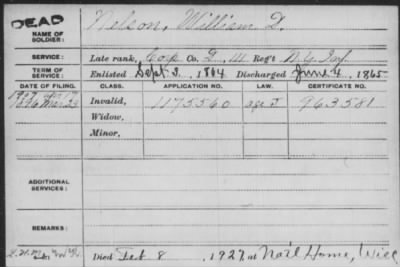 DEAD
NAME OF SOLDIER: Nelson, William D.
SERVICE: Late rank, Corp Co. D, 111 Reg't N.Y. Inf.
TERM OF SERVICE: Enlisted Sept 3, 1864 Discharged June 4, 1865
DATE OF FILING. CLASS. APPLICATION NO. LAW. CERTIFICATE NO.
Invalid, 1175560 963581
Widow,
Minor,
ADDITIONAL SERVICES:
REMARKS:
Died Feb 8, 1927, at Nat'l Home, Wisc